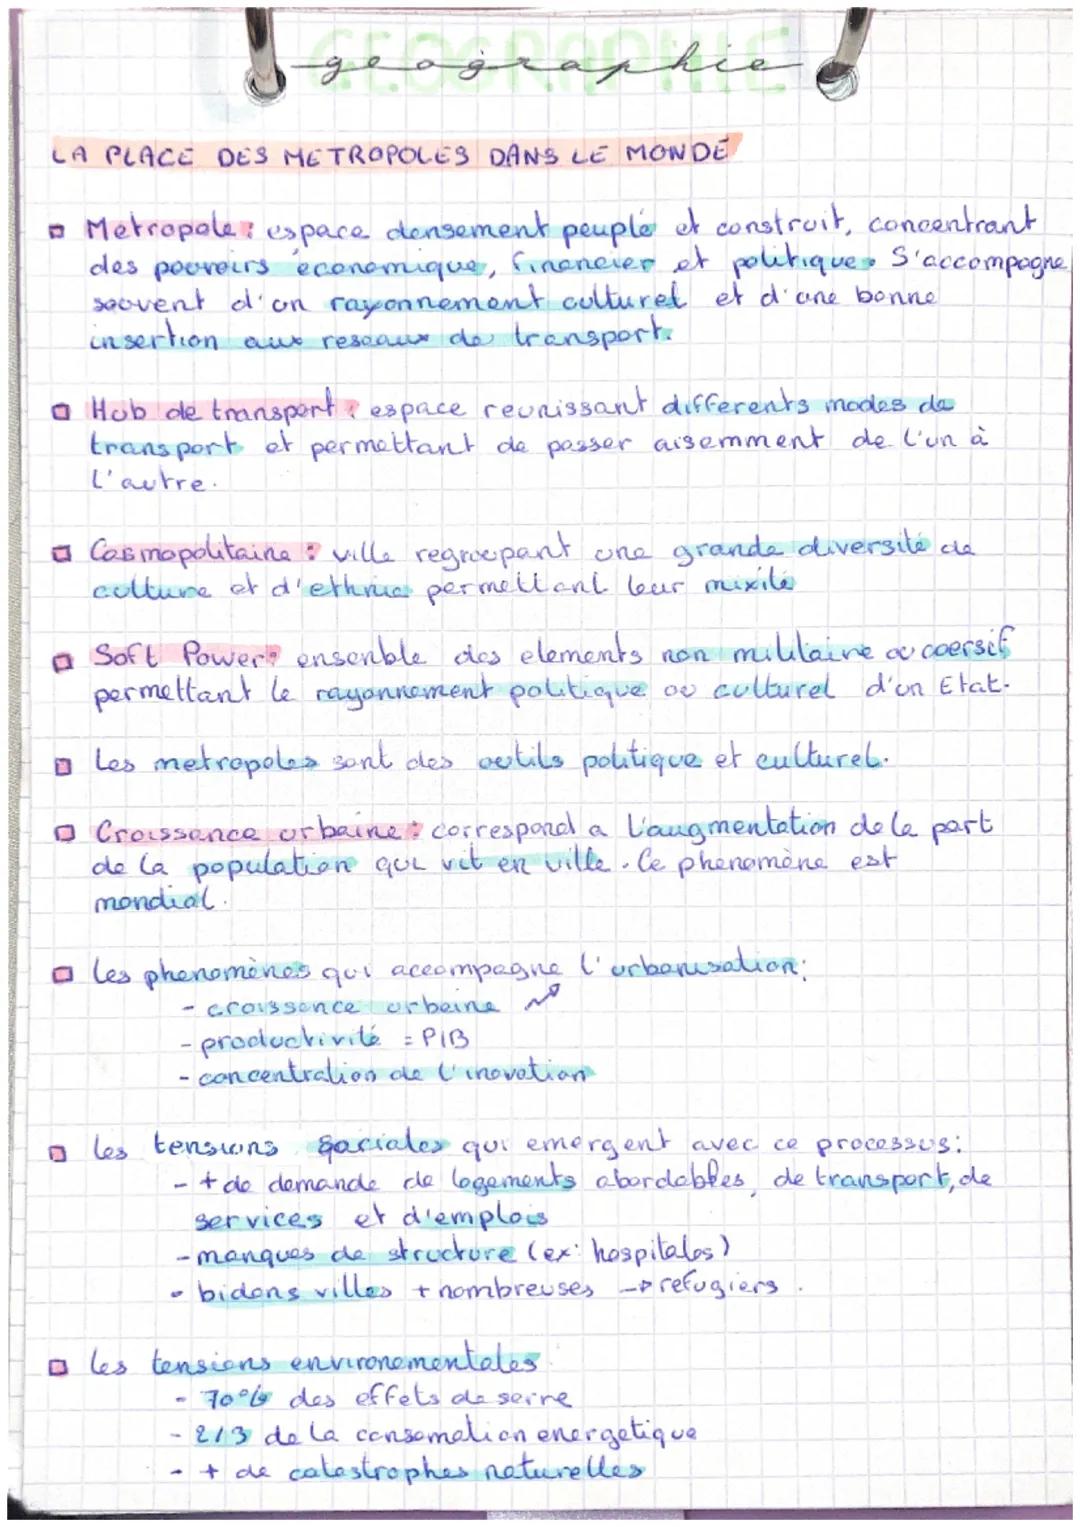 GEOGRAPHIE
geographie
LA PLACE DES METROPOLES DANS LE MONDE
Metropole : espace densement peuplé et construit, concentrant
des pouvoirs économique, financier et politique. S'accompagne
souvent d'un rayonnement culturel et d'une bonne
insertion aux reseaux de transport.
Hub de transport : espace reunissant differents modes de
transport et permettant de passer aisemment de l'un à
l'autre.
Cosmopolitaine : ville regroupant une grande diversité de
culture et d'ethnie permettant leur mixité
Soft Power : ensenble des elements non militaire ou coersif
permettant le rayonnement politique ou culturel d'un Etat.
Les metropoles sont des outils politique et culturel.
Croissance urbaine : correspond a l'augmentation de la part
de la population qui vit en ville. Ce phenomène est
mondial.
les phenomènes qui accompagne l'urbanisation:
- croissance urbaine ↗
- productivité = PIB
- concentration de l'inovation
les tensions sociales qui emergent avec ce processus:
- + de demande de logements abordables, de transport, de
services et d'emplois
- manques de structure (ex: hospitales)
- bidons villes + nombreuses → refugiers.
les tensions environementales
- 70% des effets de serre
- 2/3 de la consomation energetique
- + de catastrophes naturelles